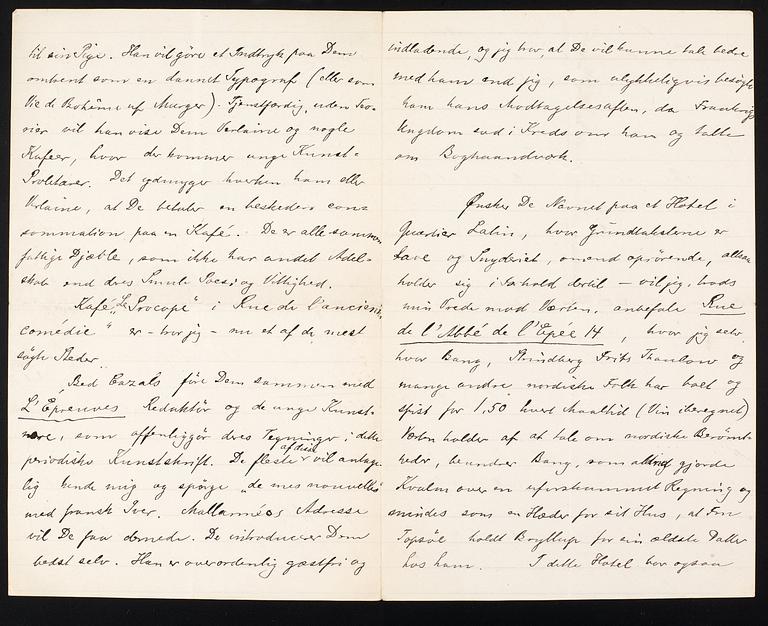 til sin Pige. Han vil göre et Indtryk paa Dem
omtrent som en dannet Typograf (eller som
Vie de Bohême af Murger). Tjenstfærdig, uden
vil han vise Dem Verlaine og nogle
Kafeer, hvor der kommer unge Kunst-
Proletarer. Det ydmyger hverken ham eller
Verlaine, at De betaler en beskeden con-
sommation paa en Kafé. De er alle sammen
fattige Djævle, som ikke har andet Adel-
skab end deres Smule Poesi og Vittighed.
Kafé „Le Procope" i Rue de l'ancienne
comédie" er – tror jeg – nu et af de mest
søgte Steder.
Bed Cazals före Dem sammen med
L'Epreuves Redaktör og de unge Kunst-
nere, som offenliggör deres Tegninger i dette
periodiske Kunstskrift. De fleste af disse vil antage-
lig kende mig og spörge „de mes nouvelles"
med fransk Iver. Mallarmées Adresse
vil De faa dernede. De introducerer Dem
bedst selv. Han er overordenlig gæstfri og
indladende, og jeg tror, at De vil kunne tale bedre
med ham end jeg, som ulykkeligvis besögte
ham hans Modtagelsesaften, da Frankrigs
Ungdom sad i Kreds om ham og talte
om Boghaandværk.
Ønsker De Navnet paa et Hotel i
Quartier Latin, hvor Grundtaksterne er
lave og Snyderiet, omend oprörende, altsaa
holder sig i Forhold dertil – vil jeg, trods
min Vrede mod Værten, anbefale Rue
de l'Abbé de l'Epée 14, hvor jeg selv,
hvor Bang, Strindberg, Frits Thaulow og
mange andre nordiske Folk har boet og
spist for 1,50 hvert Maaltid (Vin iberegnet)
Værten holder af at tale om nordiske Berömt-
heder, beundrer Bang, som aldrig gjorde
Kvalm over en uforskammet Regning og
mindes som en Hæder for sit Hus, at Fru
Topsöe holdt Bryllup for sin ældste Datter
hos ham. I dette Hotel bor ogsaa